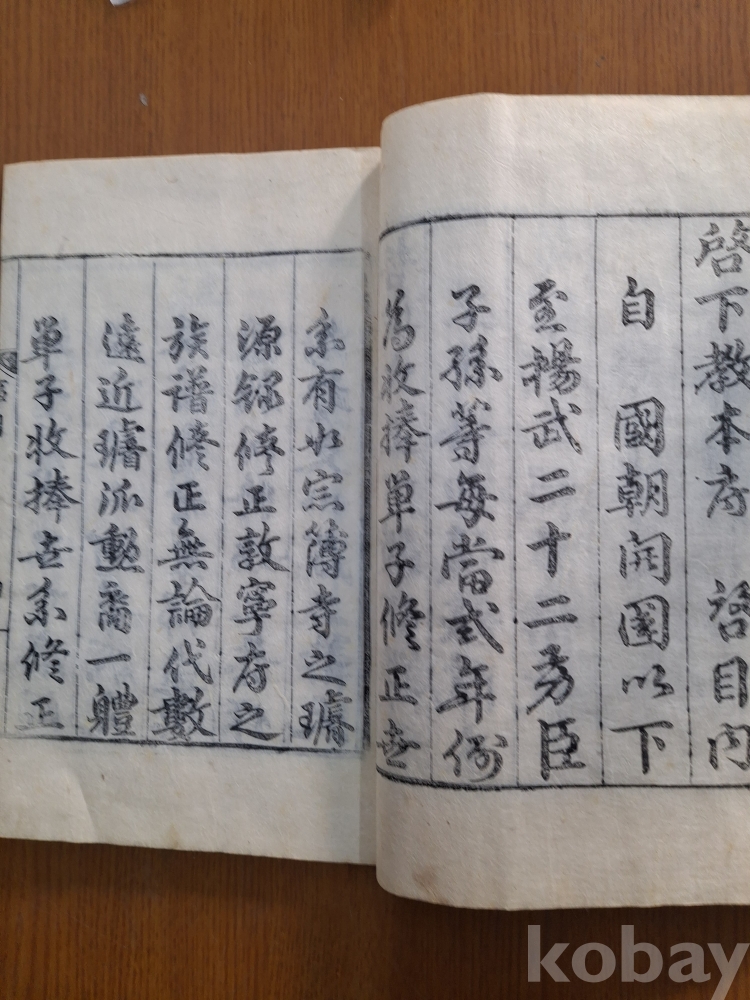 啓下教本府 啓目內
自 國朝開國以下
至揚武二十二勇臣
子孫等每當式年例
爲收捧單子修正世
系有如宗簿寺之璿
源錄修正敦寧府之
族譜修正無論代數
遠近璿派勳裔一軆
單子收捧世系修正
kobay